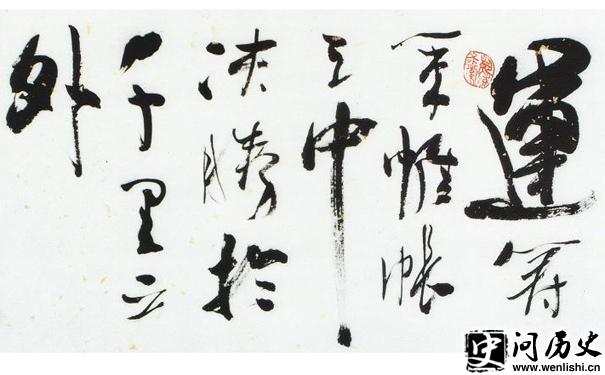 運筹
策帷帳
之中
决勝於
千里之
外
史问历史
www.wenlishi.cn